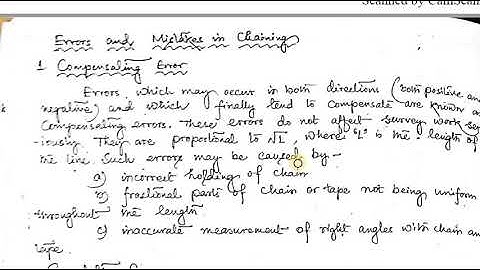 Scanned by CamScan
Errors and Mistakes in Chaining
1 Compensating Error
Errors which may occur in both directions (both positive and
negative) and which finally tend to compensate are known as
Compensating errors. These errors do not affect survey work ser-
iously. They are proportional to √L, where "L" is the length of
the line. Such errors may be caused by -
a) incorrect holding of chain
b) fractional parts of chain or tape not being uniform
throughout the length
c) inaccurate measurement of right angles with chain an
tape